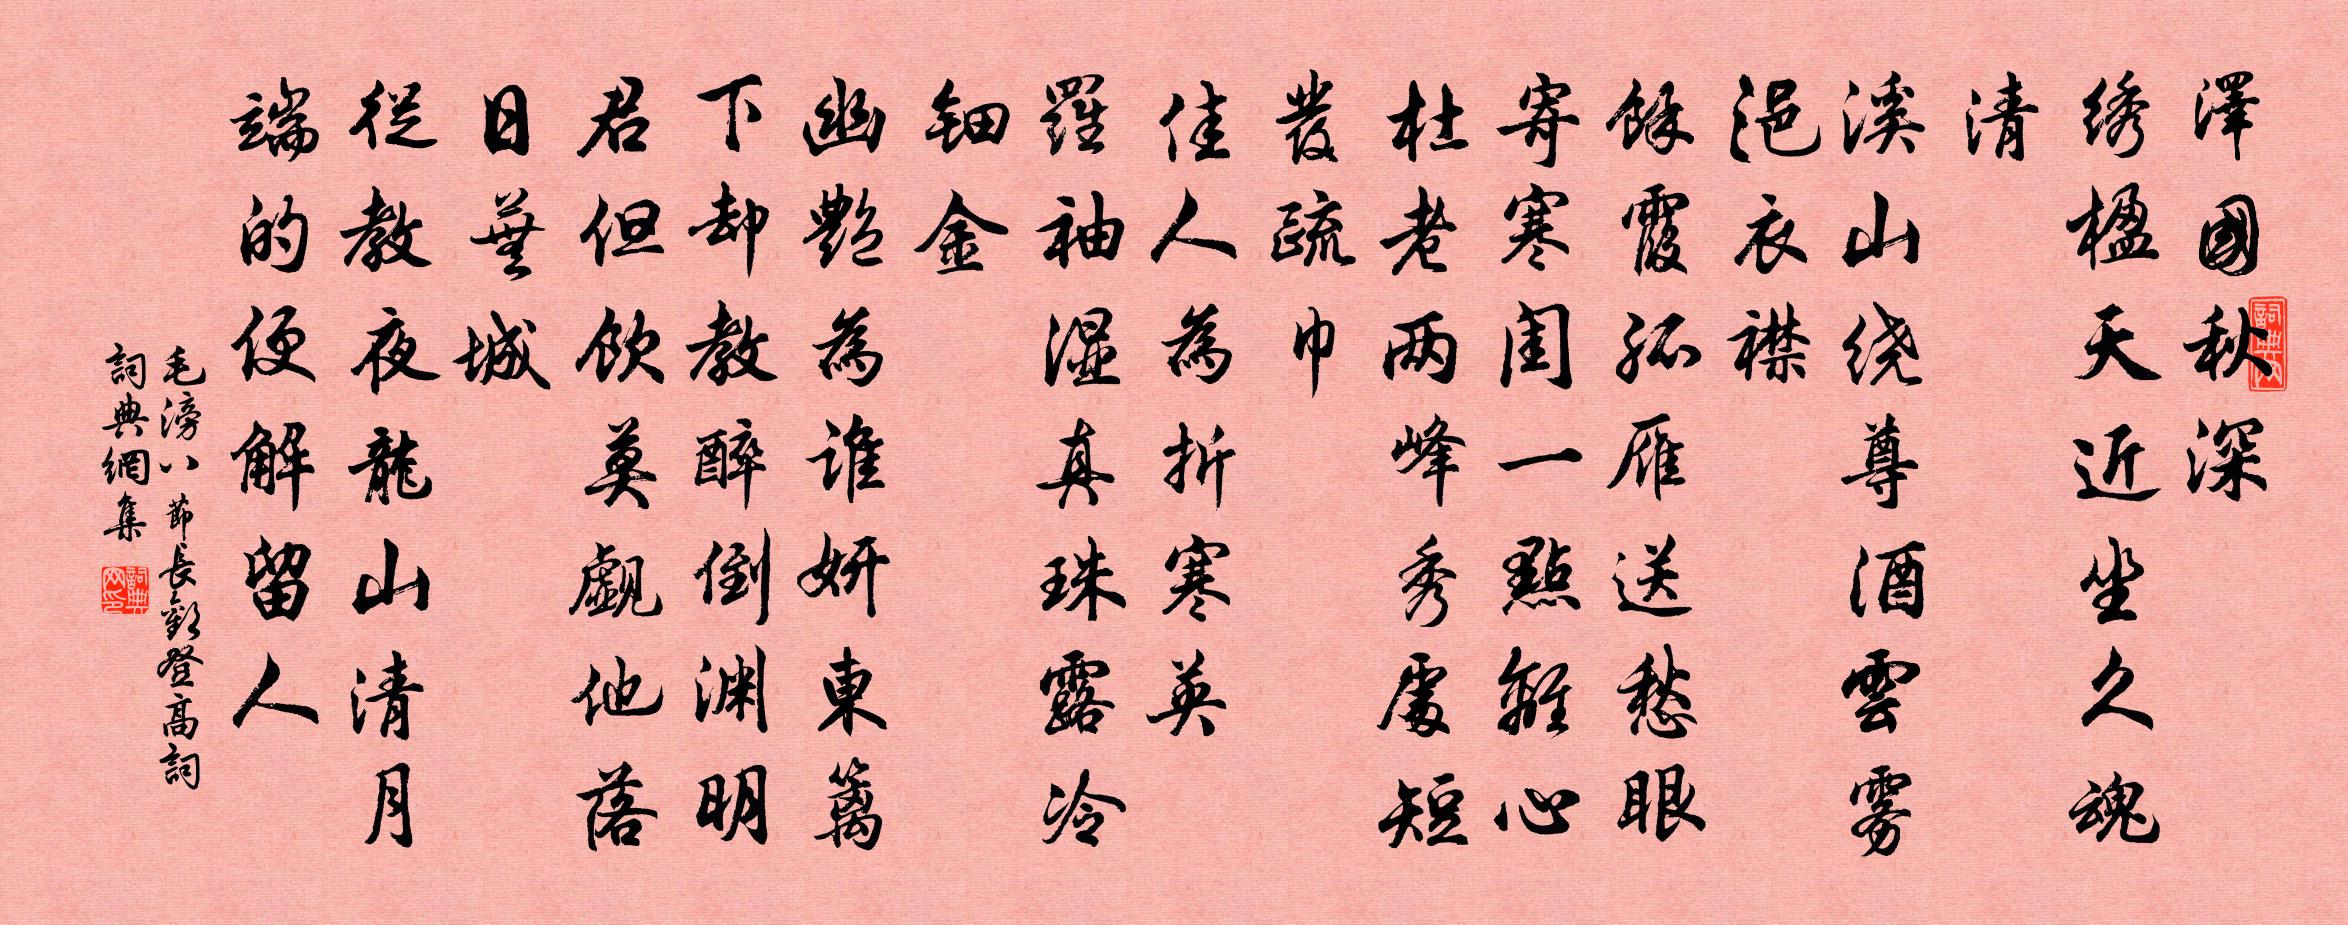 澤國秋深
绣楹天近坐久魂
清
溪山绕尊酒雲雾
浥衣襟
餘霞孤雁送愁眼
寄寒闺一點離心
杜老两峰秀處短
發疏巾
佳人為折寒英
羅袖湿真珠露冷
钿金
幽艷為誰妍東篱
下却教醉倒渊明
君但飲莫觑他落
日蕪城
從教夜龍山清月
端的便解留人
毛滂八節長歡登高詞
詞典網集